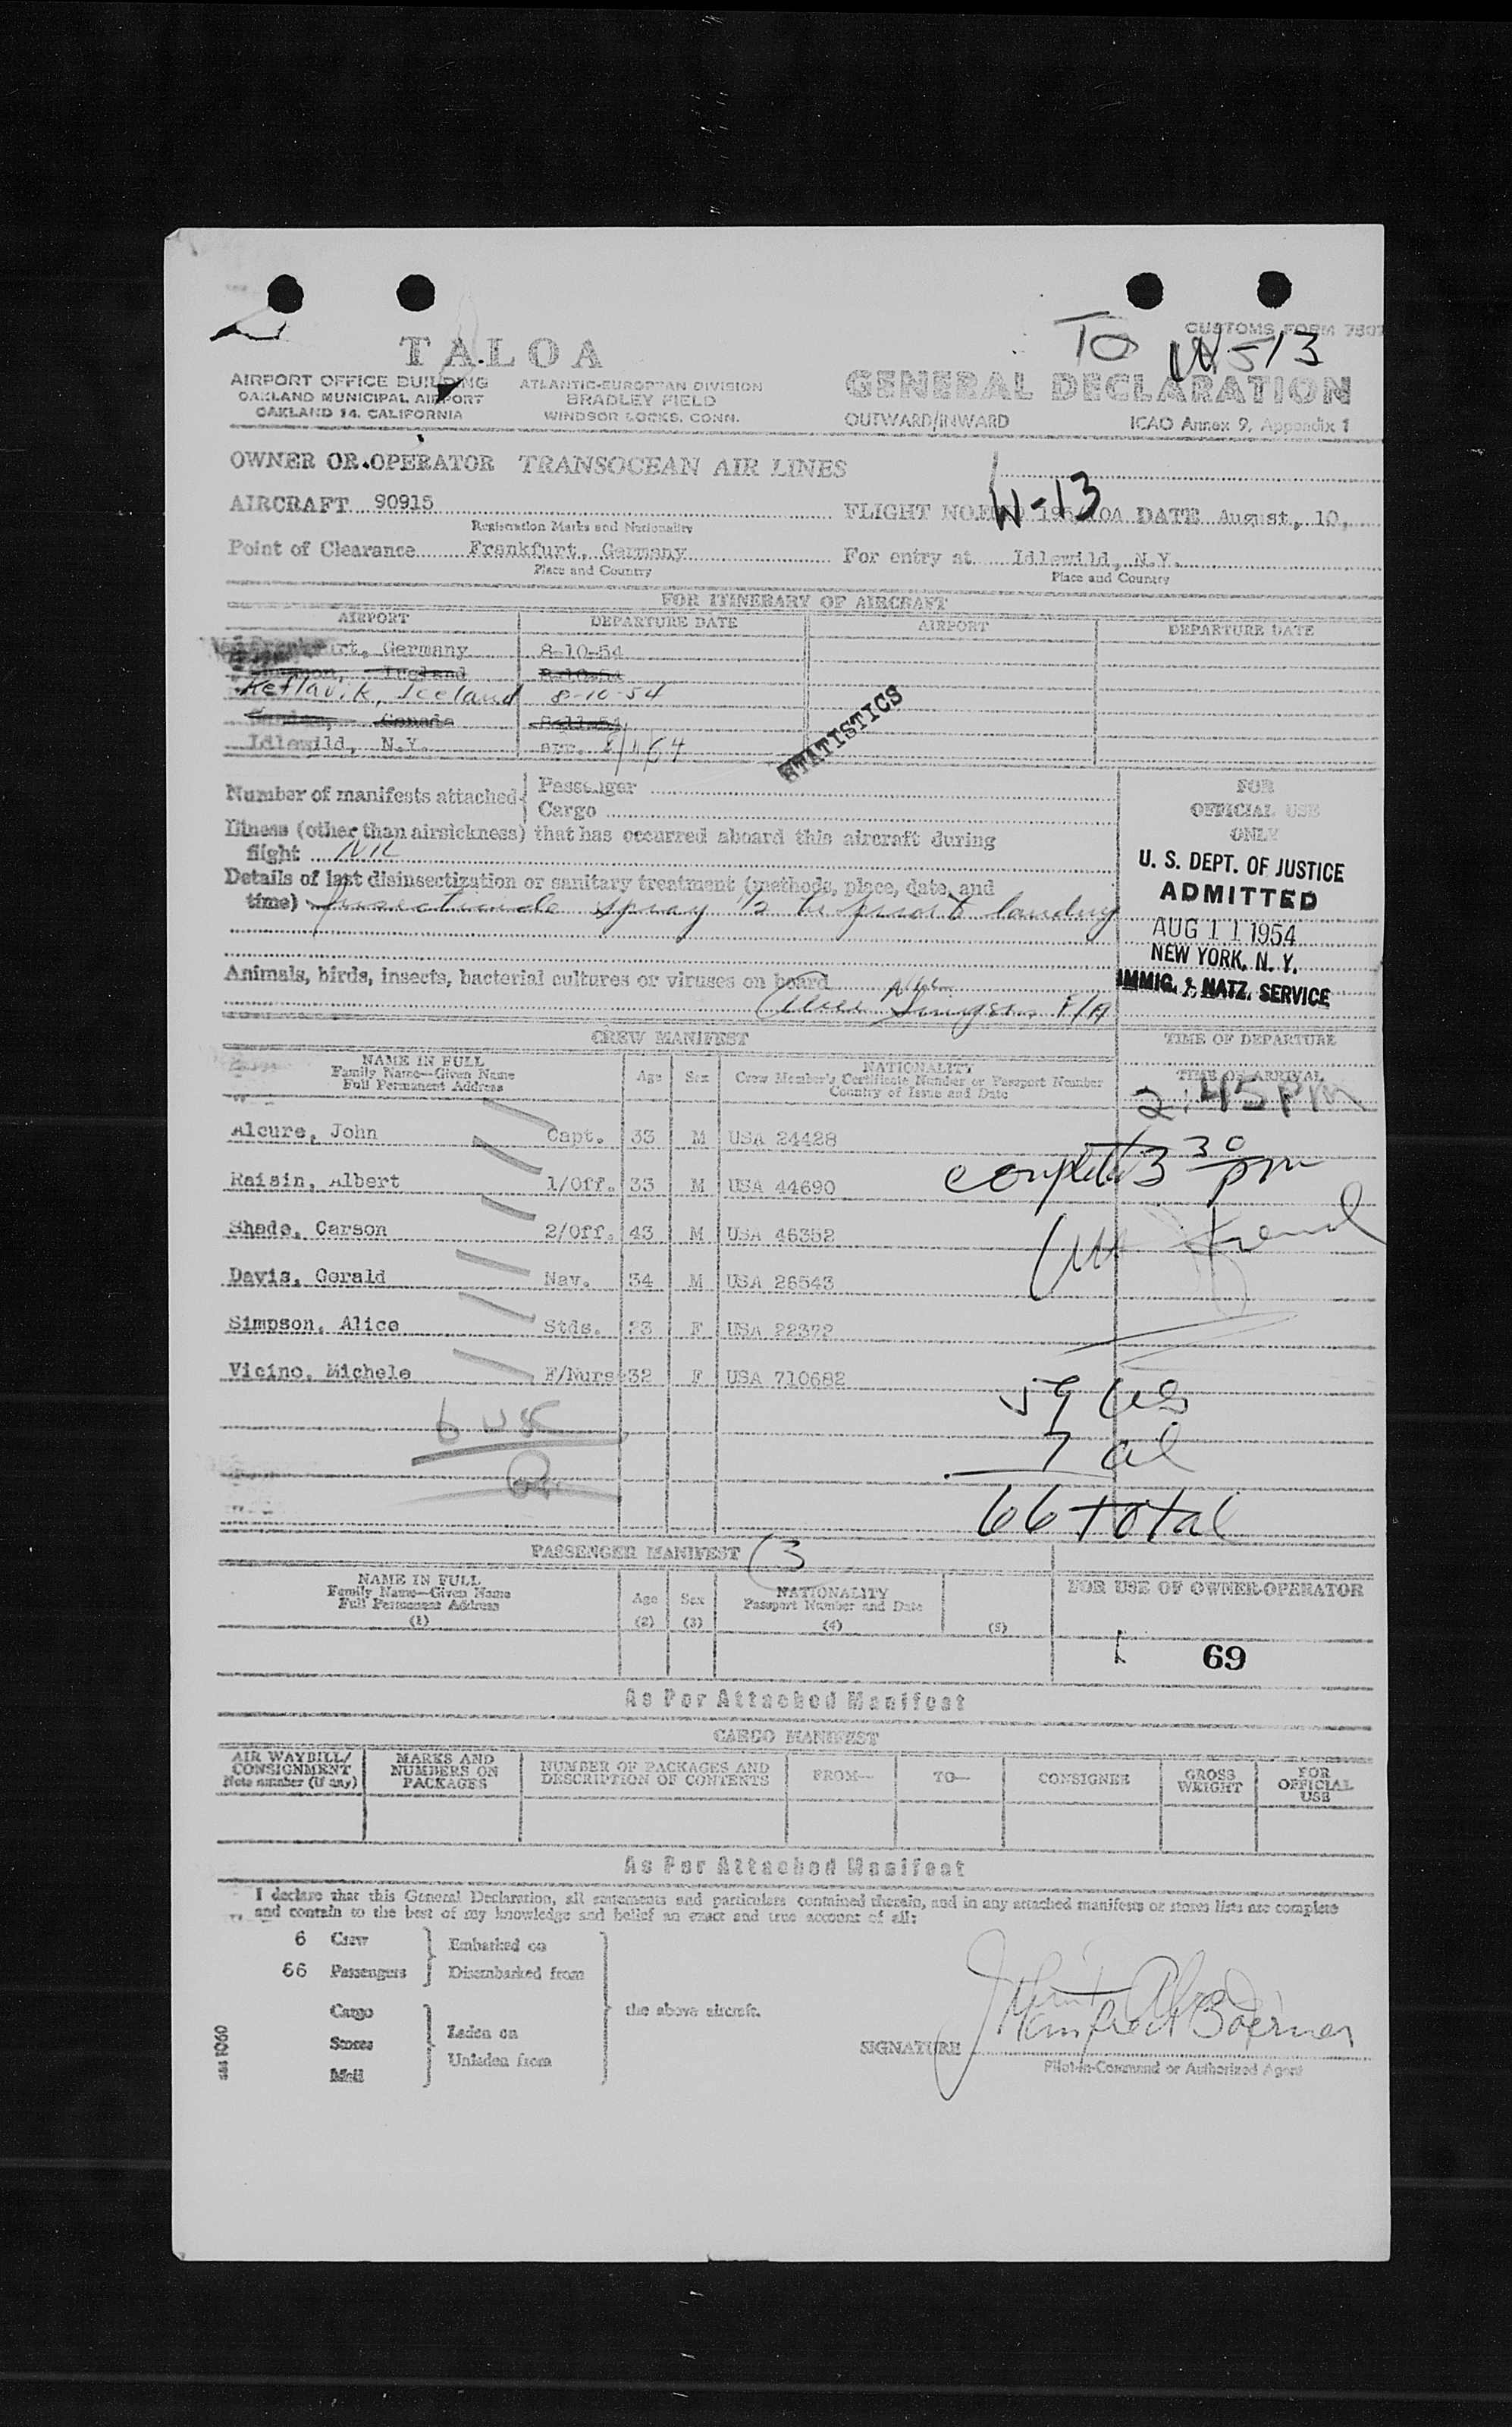 To W-513
CUSTOMS FORM 7507
TALOA
AIRPORT OFFICE BUILDING
OAKLAND MUNICIPAL AIRPORT
OAKLAND 14, CALIFORNIA
ATLANTIC-EUROPEAN DIVISION
BRADLEY FIELD
WINDSOR LOCKS, CONN.
GENERAL DECLARATION
OUTWARD/INWARD ICAO Annex 9, Appendix 1
OWNER OR OPERATOR TRANSOCEAN AIR LINES
AIRCRAFT 90915 FLIGHT NO. W-13 DATE August, 10,
Registration Marks and Nationality
Point of Clearance Frankfurt, Germany For entry at Idlewild, N.Y.
Place and Country Place and Country
FOR ITINERARY OF AIRCRAFT
AIRPORT DEPARTURE DATE AIRPORT DEPARTURE DATE
Frankfurt, Germany 8-10-54
Shannon, Ireland 8-10-54
Keflavik, Iceland 8-10-54
Canada 8-11-54
Idlewild, N.Y. arr. 8/11/54
STATISTICS
Number of manifests attached Passenger
Cargo
Illness (other than airsickness) that has occurred aboard this aircraft during
flight NIL
Details of last disinsectization or sanitary treatment (methods, place, date, and
time) Insecticide spray 1/2 hr prior to landing
Animals, birds, insects, bacterial cultures or viruses on board
Alice Simpson F/A
FOR
OFFICIAL USE
ONLY
U. S. DEPT. OF JUSTICE
ADMITTED
AUG 11 1954
NEW YORK, N. Y.
IMMIG. & NATZ. SERVICE
CREW MANIFEST
TIME OF DEPARTURE
NAME IN FULL
Family Name—Given Name
Full Permanent Address
Age Sex
NATIONALITY
Crew Member's Certificate Number or Passport Number
Country of Issue and Date
TIME OF ARRIVAL
2:45 PM
Alcure, John Capt. 33 M USA 24428
completed 3 30 pm
Raisin, Albert 1/Off. 33 M USA 44690
Shade, Carson 2/Off. 43 M USA 46352
Davis, Gerald Nav. 34 M USA 26543
Simpson, Alice Stds. 23 F USA 22372
Vicino, Michele F/Nurse 32 F USA 710682
6 US
59 US
7 al
66 total
PASSENGER MANIFEST 3
NAME IN FULL
Family Name—Given Name
Full Permanent Address
(1)
Age
(2)
Sex
(3)
NATIONALITY
Passport Number and Date
(4)
(5)
FOR USE OF OWNER-OPERATOR
69
As Per Attached Manifest
CARGO MANIFEST
AIR WAYBILL/
CONSIGNMENT
Note number (if any)
MARKS AND
NUMBERS ON
PACKAGES
NUMBER OF PACKAGES AND
DESCRIPTION OF CONTENTS
FROM—
TO—
CONSIGNEE
GROSS
WEIGHT
FOR
OFFICIAL
USE
As Per Attached Manifest
I declare that this General Declaration, all statements and particulars contained therein, and in any attached manifests or stores lists are complete
and contain to the best of my knowledge and belief an exact and true account of all:
6 Crew Embarked on
66 Passengers Disembarked from
Cargo the above aircraft.
Stores Laden on
Mail Unladen from
SIGNATURE Manfred Boerner
Pilot-in-Command or Authorized Agent